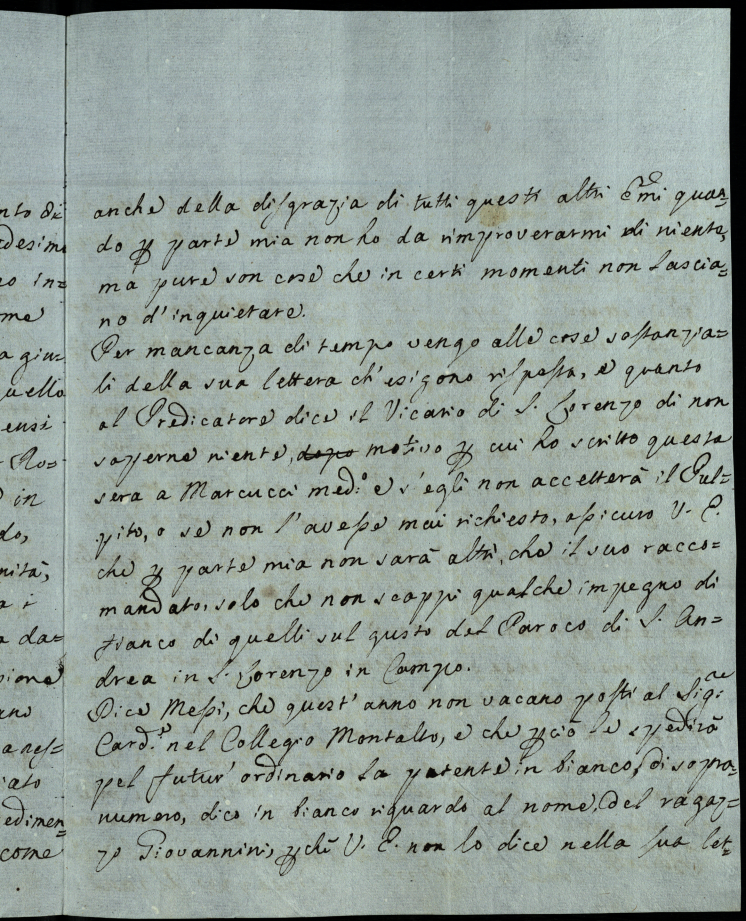 nto di
desimo
eo in=
me
a giu=
uello
ensi
Ro=
in
do,
nità,
a i
a da=
pione
ano
a nes=
iato
edimen=
come
anche della disgrazia di tutti questi altri Emi quan=
do p parte mia non ho da rimproverarmi di niente,
ma pure son cose che in certi momenti non lascia=
no d'inquietare.
Per mancanza di tempo vengo alle cose sostanzia=
li della sua lettera ch'esigono risposta, e quanto
al Predicatore dice il Vicario di S. Lorenzo di non
saperne niente, dopo motivo p cui ho scritto questa
sera a Marcucci med.o e s'egli non accetterà il Pul=
pito, o se non l'avesse mai richiesto, assicuro V. E.
che p parte mia non sarà altri, che il suo racco=
mandato, solo che non scappi qualche impegno di
fianco di quelli sul gusto del Paroco di S. An=
drea in S. Lorenzo in Campo.
Dice Messi, che quest'anno non vacano posti al Sig.e
Card.e nel Collegio Montalto, e che pciò le spedirà
pel futur'ordinario la patente in bianco, di sopra=
numero, dico in bianco riguardo al nome, del ragaz=
zo Giovannini, pchè V. E. non lo dice nella sua let=